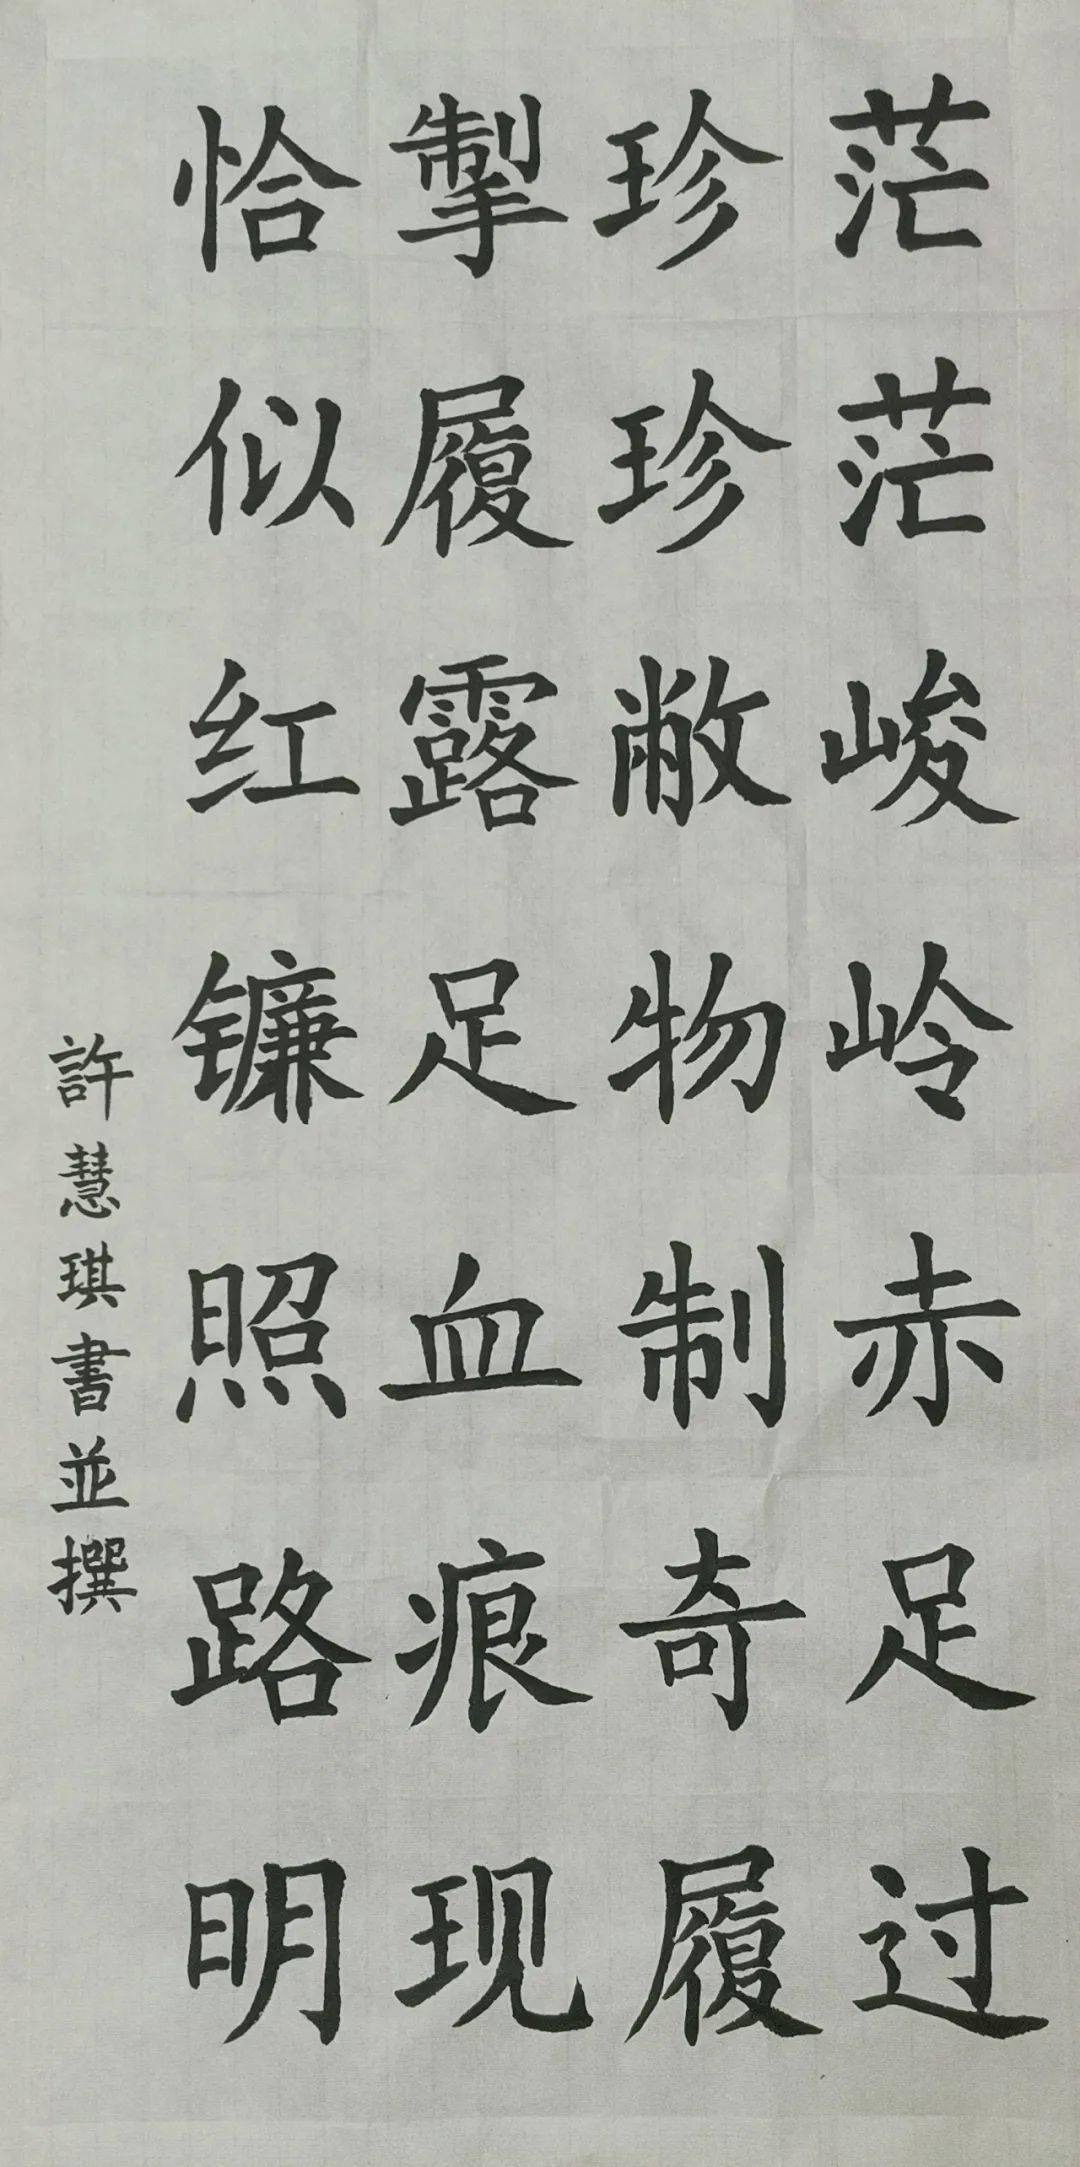 茫茫峻岭赤足过
珍珍敝物制奇履
掣履露足血痕现
恰似红镰照路明
許慧琪書並撰